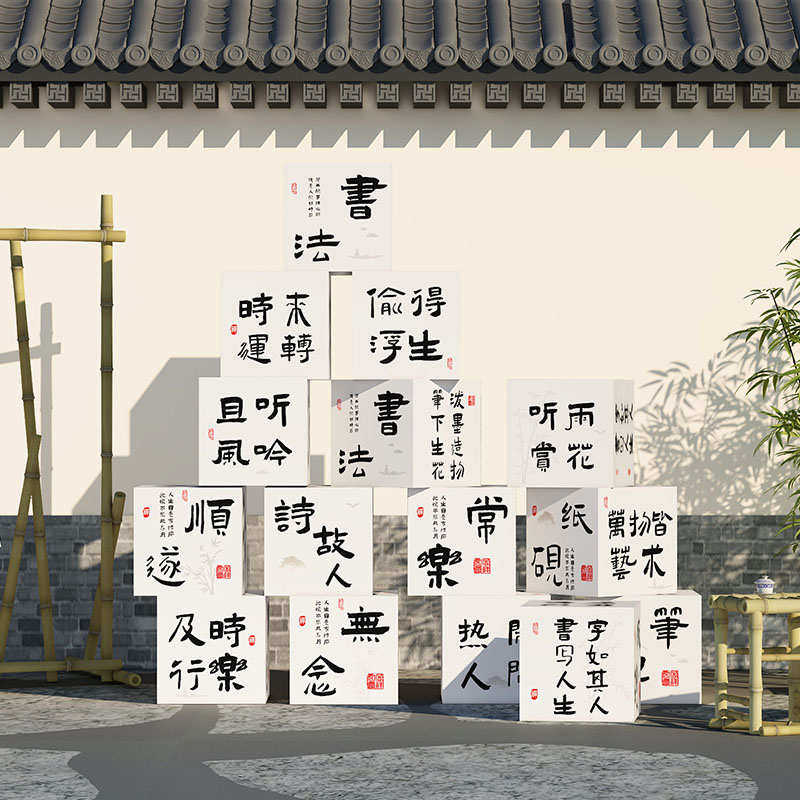 書
法
時來
運轉
偷得
浮生
且听
風吟
書
法
泼墨造物
筆下生花
听雨
賞花
順
遂
詩
故人
常
樂
纸
硯
萬物皆
藝术
及時
行樂
無
念
热
人
字如其人
書写人生
筆